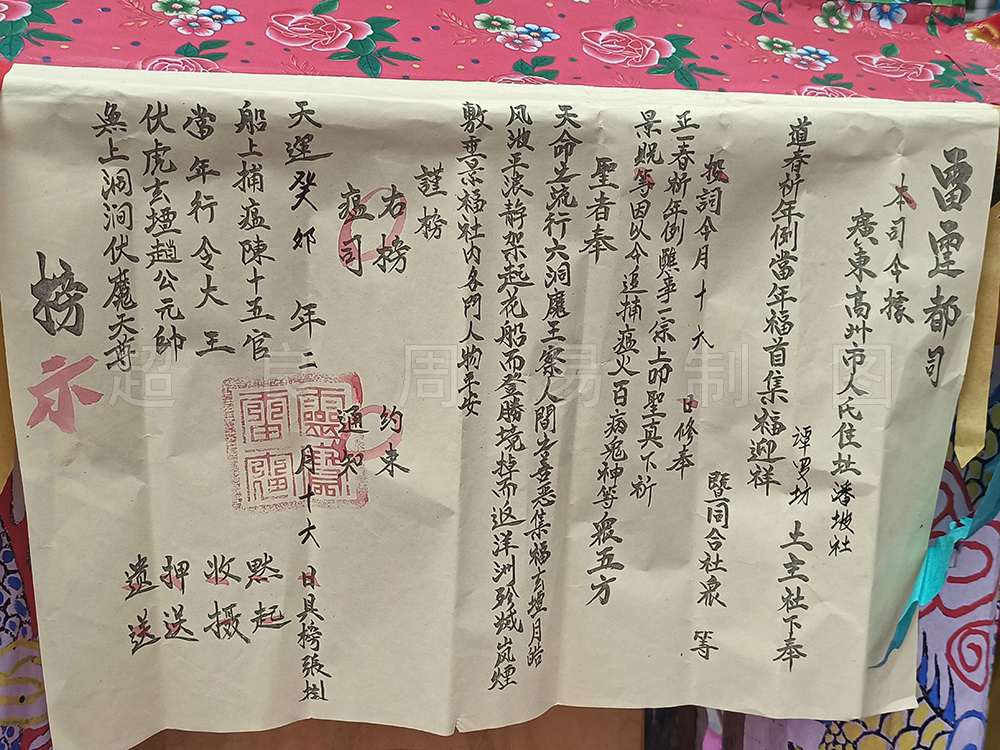 雷霆都司
本司今據
廣東高州市人氏住址潘坡社
譚罗坊 土主社下奉
道春祈年例當年福首集福迎祥
暨同合社衆 等
投詞今月十六 日修奉
正一春祈年例醮事一宗上叩聖真下祈
景貺等因以今追捕瘟火百病鬼神等衆五方
聖者奉
天命之流行六洞魔王察人間考善惡集福玄壇月皓
风波平浪静架起花船而登勝境掉而返洋洲殄滅岚煙
敷一景福社内各門人物平安
謹榜
右榜 約束
瘟司 通知
天運癸卯 年二 月十六 日具榜張掛
船上捕瘟陳十五官 黙起
當年行令大王 收摄
伏虎玄壇趙公元帥 押送
無上洞淵伏魔天尊 遣送
榜示
超 言 周 易 制 图